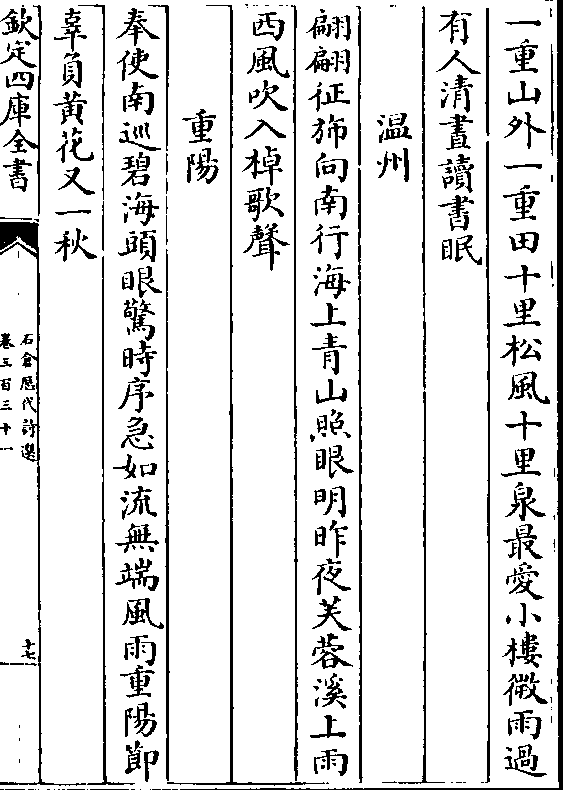 一重山外一重田十里松風十里泉最愛小樓微雨過
有人清晝讀書眠
温州
翩翩征斾向南行海上青山照眼明昨夜芙蓉溪上雨
西風吹入棹歌聲
重陽
奉使南巡碧海頭眼驚時序急如流無端風雨重陽節
辜負黃花又一秋
欽定四庫全書
石倉歴代詩選
卷三百三十一
十七